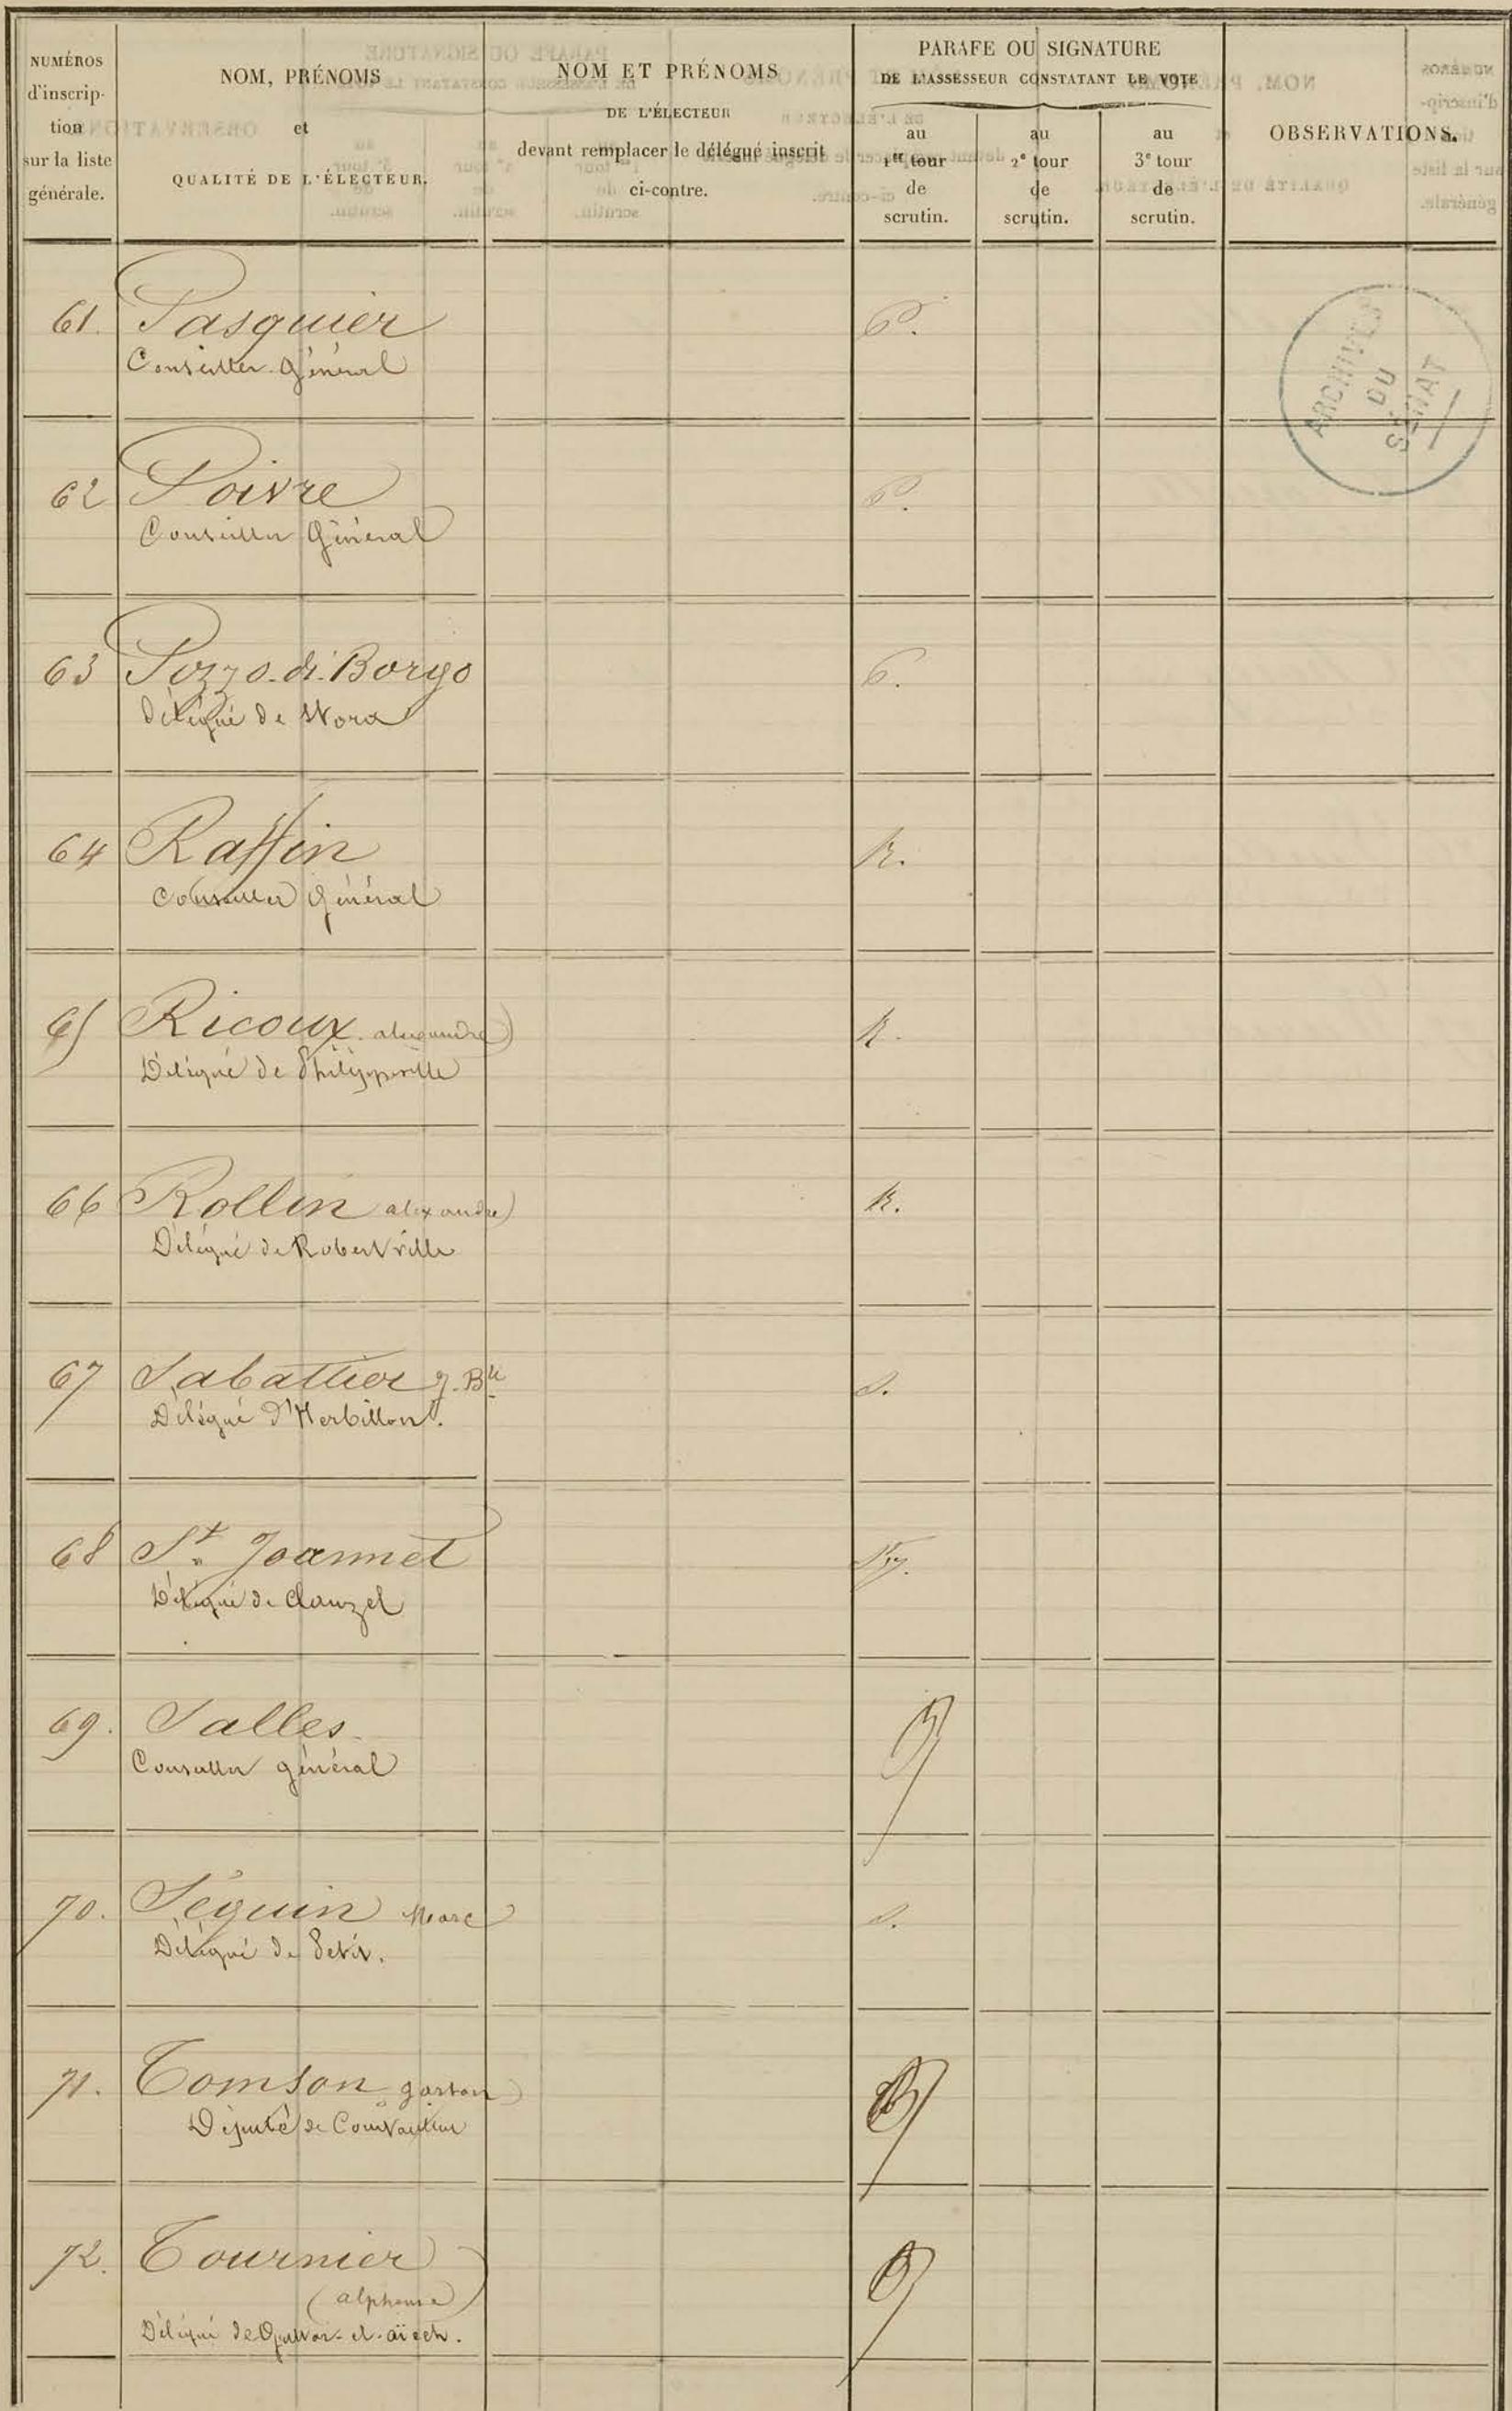 NUMÉROS
d'inscrip-
tion
sur la liste
générale.
NOM, PRÉNOMS
et
QUALITÉ DE L'ÉLECTEUR.
NOM ET PRÉNOMS
DE L'ÉLECTEUR
devant remplacer le délégué inscrit
ci-contre.
PARAFE OU SIGNATURE
DE L'ASSESSEUR CONSTATANT LE VOTE
au
1er tour
de
scrutin.
au
2e tour
de
scrutin.
au
3e tour
de
scrutin.
OBSERVATIONS.
ARCHIVES
DU
SÉNAT
61. Pasquier P.
Conseiller Général
62 Poivre P.
Conseiller Général
63 Pozzo.di.Borgo P.
Délégué de
64 Raffin R.
Conseiller Général
65 Ricoux alexandre R.
Délégué de Philippeville
66 Rollin alexandre R.
Délégué de Robertville
67 Sabattier J. Bte S.
Délégué d'Herbillon.
68 St. Joannet
Délégué de Clauzel
69. Salles.
Conseiller général
70. Séguin Marc S.
Délégué de Sétif.
71. Tomson gaston
Député de Constantine
72. Tournier
(alphonse)
Délégué de